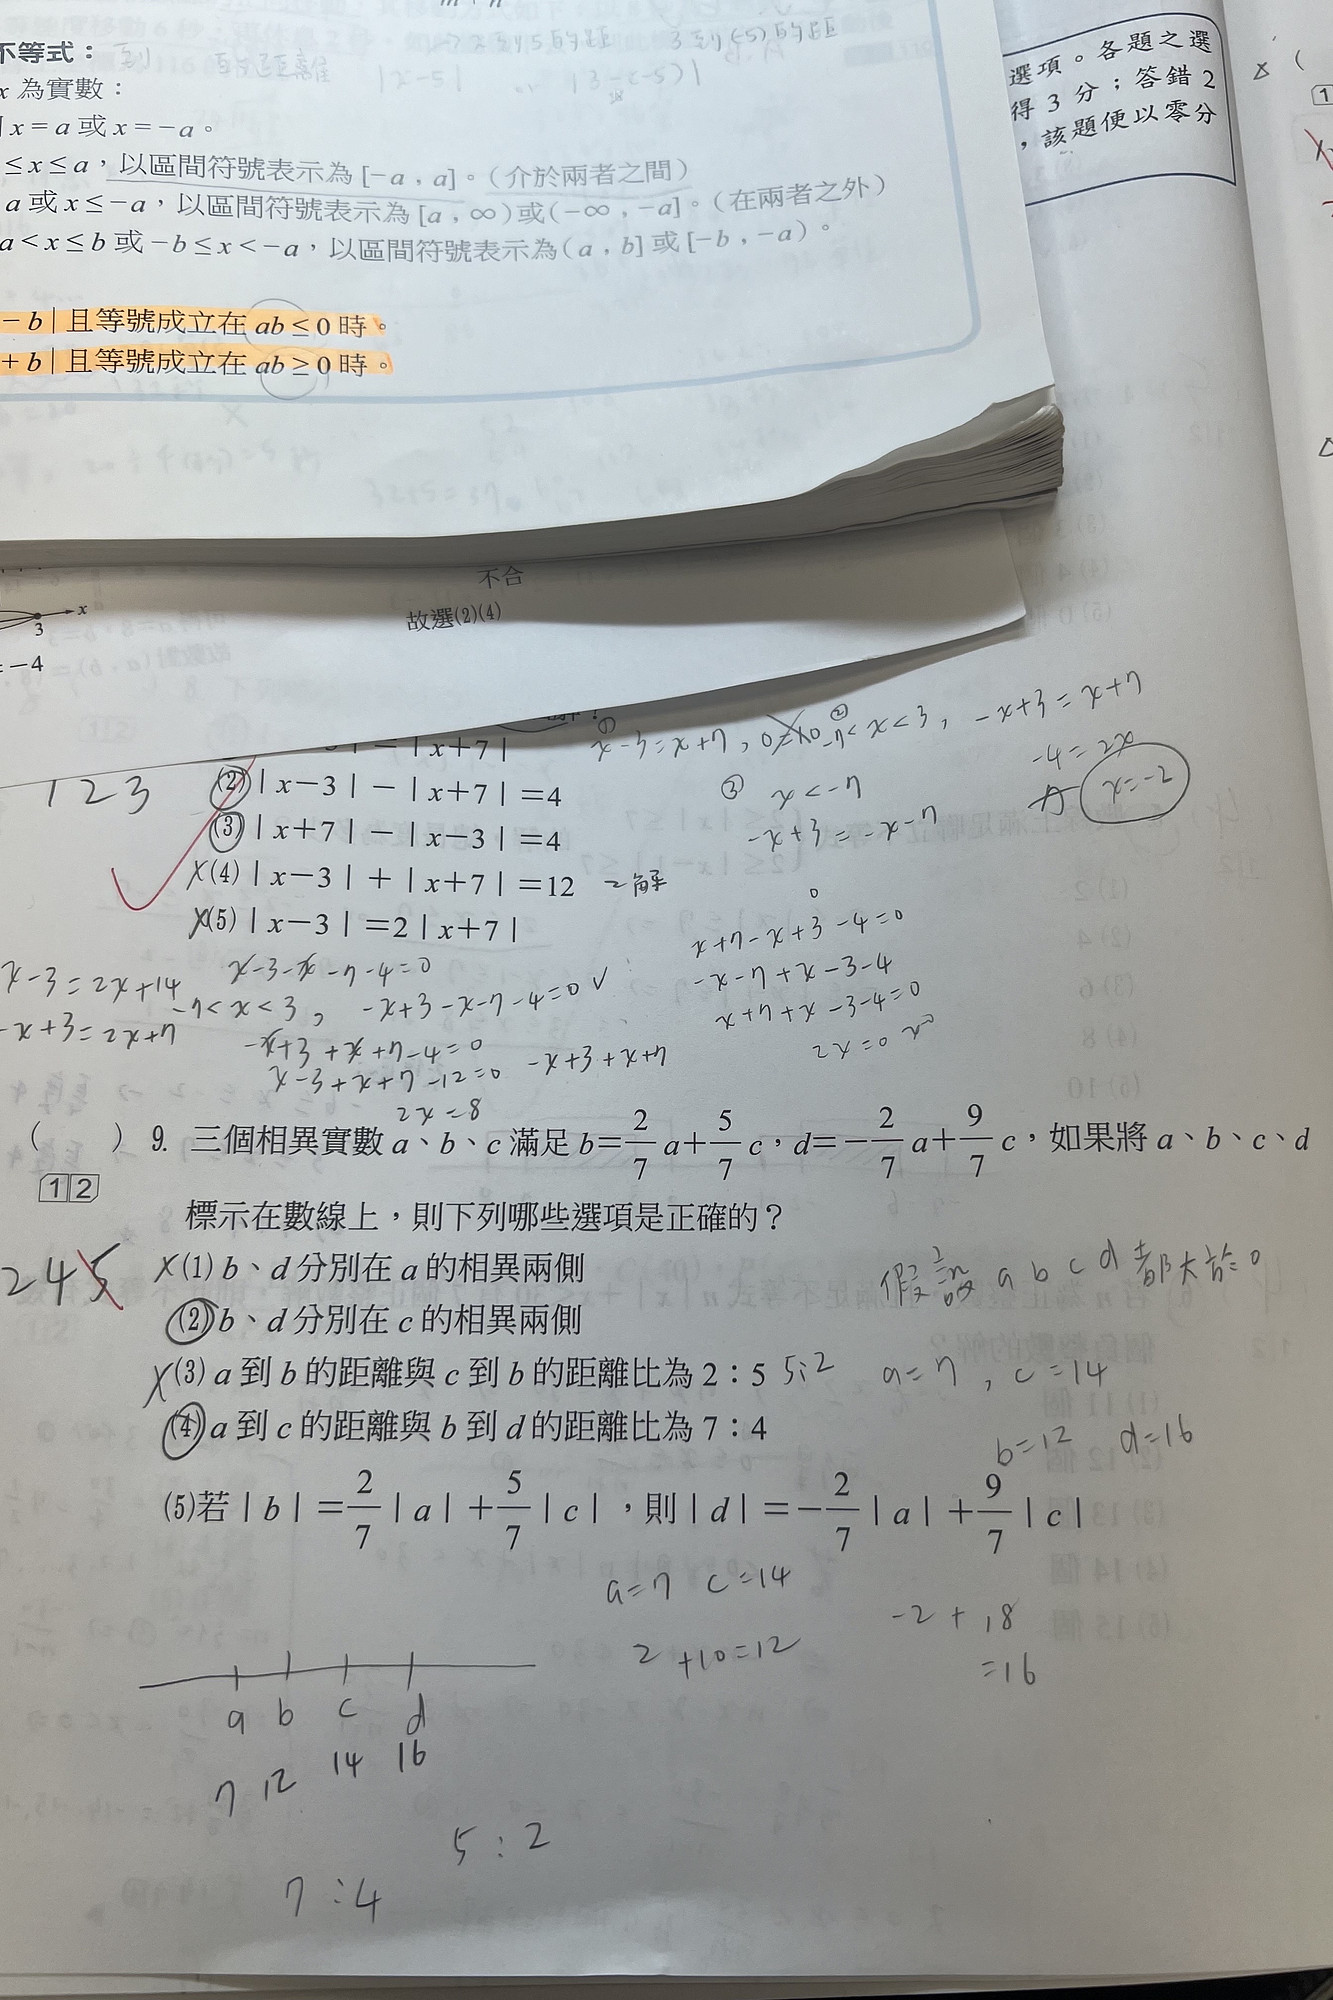 不等式： 到 的距離
x 2到5的距 3到(-5)的距
|x-5| |3-(-5)|
x 為實數：
x=a 或 x=-a。
≤x≤a，以區間符號表示為[-a，a]。（介於兩者之間）
a 或 x≤-a，以區間符號表示為[a，∞)或(-∞，-a]。（在兩者之外）
a<x≤b 或 -b≤x<-a，以區間符號表示為(a，b]或[-b，-a)。
-b| 且等號成立在 ab≤0 時。
+b| 且等號成立在 ab≥0 時。
選項。各題之選
得 3 分；答錯 2
，該題便以零分
不合
故選(2)(4)
x
3
=-4
|x+7|
① x-3=x+7, ② -7<x<3, -x+3=x+7
-4=2x
x=-2
③ x<-7
-x+3=-x-7
123
(2)|x-3|-|x+7|=4
(3)|x+7|-|x-3|=4
(4)|x-3|+|x+7|=12 2解
(5)|x-3|=2|x+7|
x+7-x+3-4=0
-x-7+x-3-4
x+7+x-3-4=0
2x=0
x-3=2x+14
-x+3=2x+7
x-3-x-7-4=0
-7<x<3, -x+3-x-7-4=0 ✓
-x+3+x+7-4=0
x-3+x+7-12=0 -x+3+x+7
2x=8
( ) 9. 三個相異實數 a、b、c 滿足 b=2/7 a+5/7 c，d=-2/7 a+9/7 c，如果將 a、b、c、d
12
標示在數線上，則下列哪些選項是正確的？
245
X(1) b、d 分別在 a 的相異兩側
(2) b、d 分別在 c 的相異兩側
X(3) a 到 b 的距離與 c 到 b 的距離比為 2：5 5:2
(4) a 到 c 的距離與 b 到 d 的距離比為 7：4
(5)若|b|=2/7|a|+5/7|c|，則|d|=-2/7|a|+9/7|c|
假設 a b c d 都大於0
a=7, c=14
b=12 d=16
a=7 c=14
2+10=12
-2+18
=16
a b c d
7 12 14 16
5:2
7:4